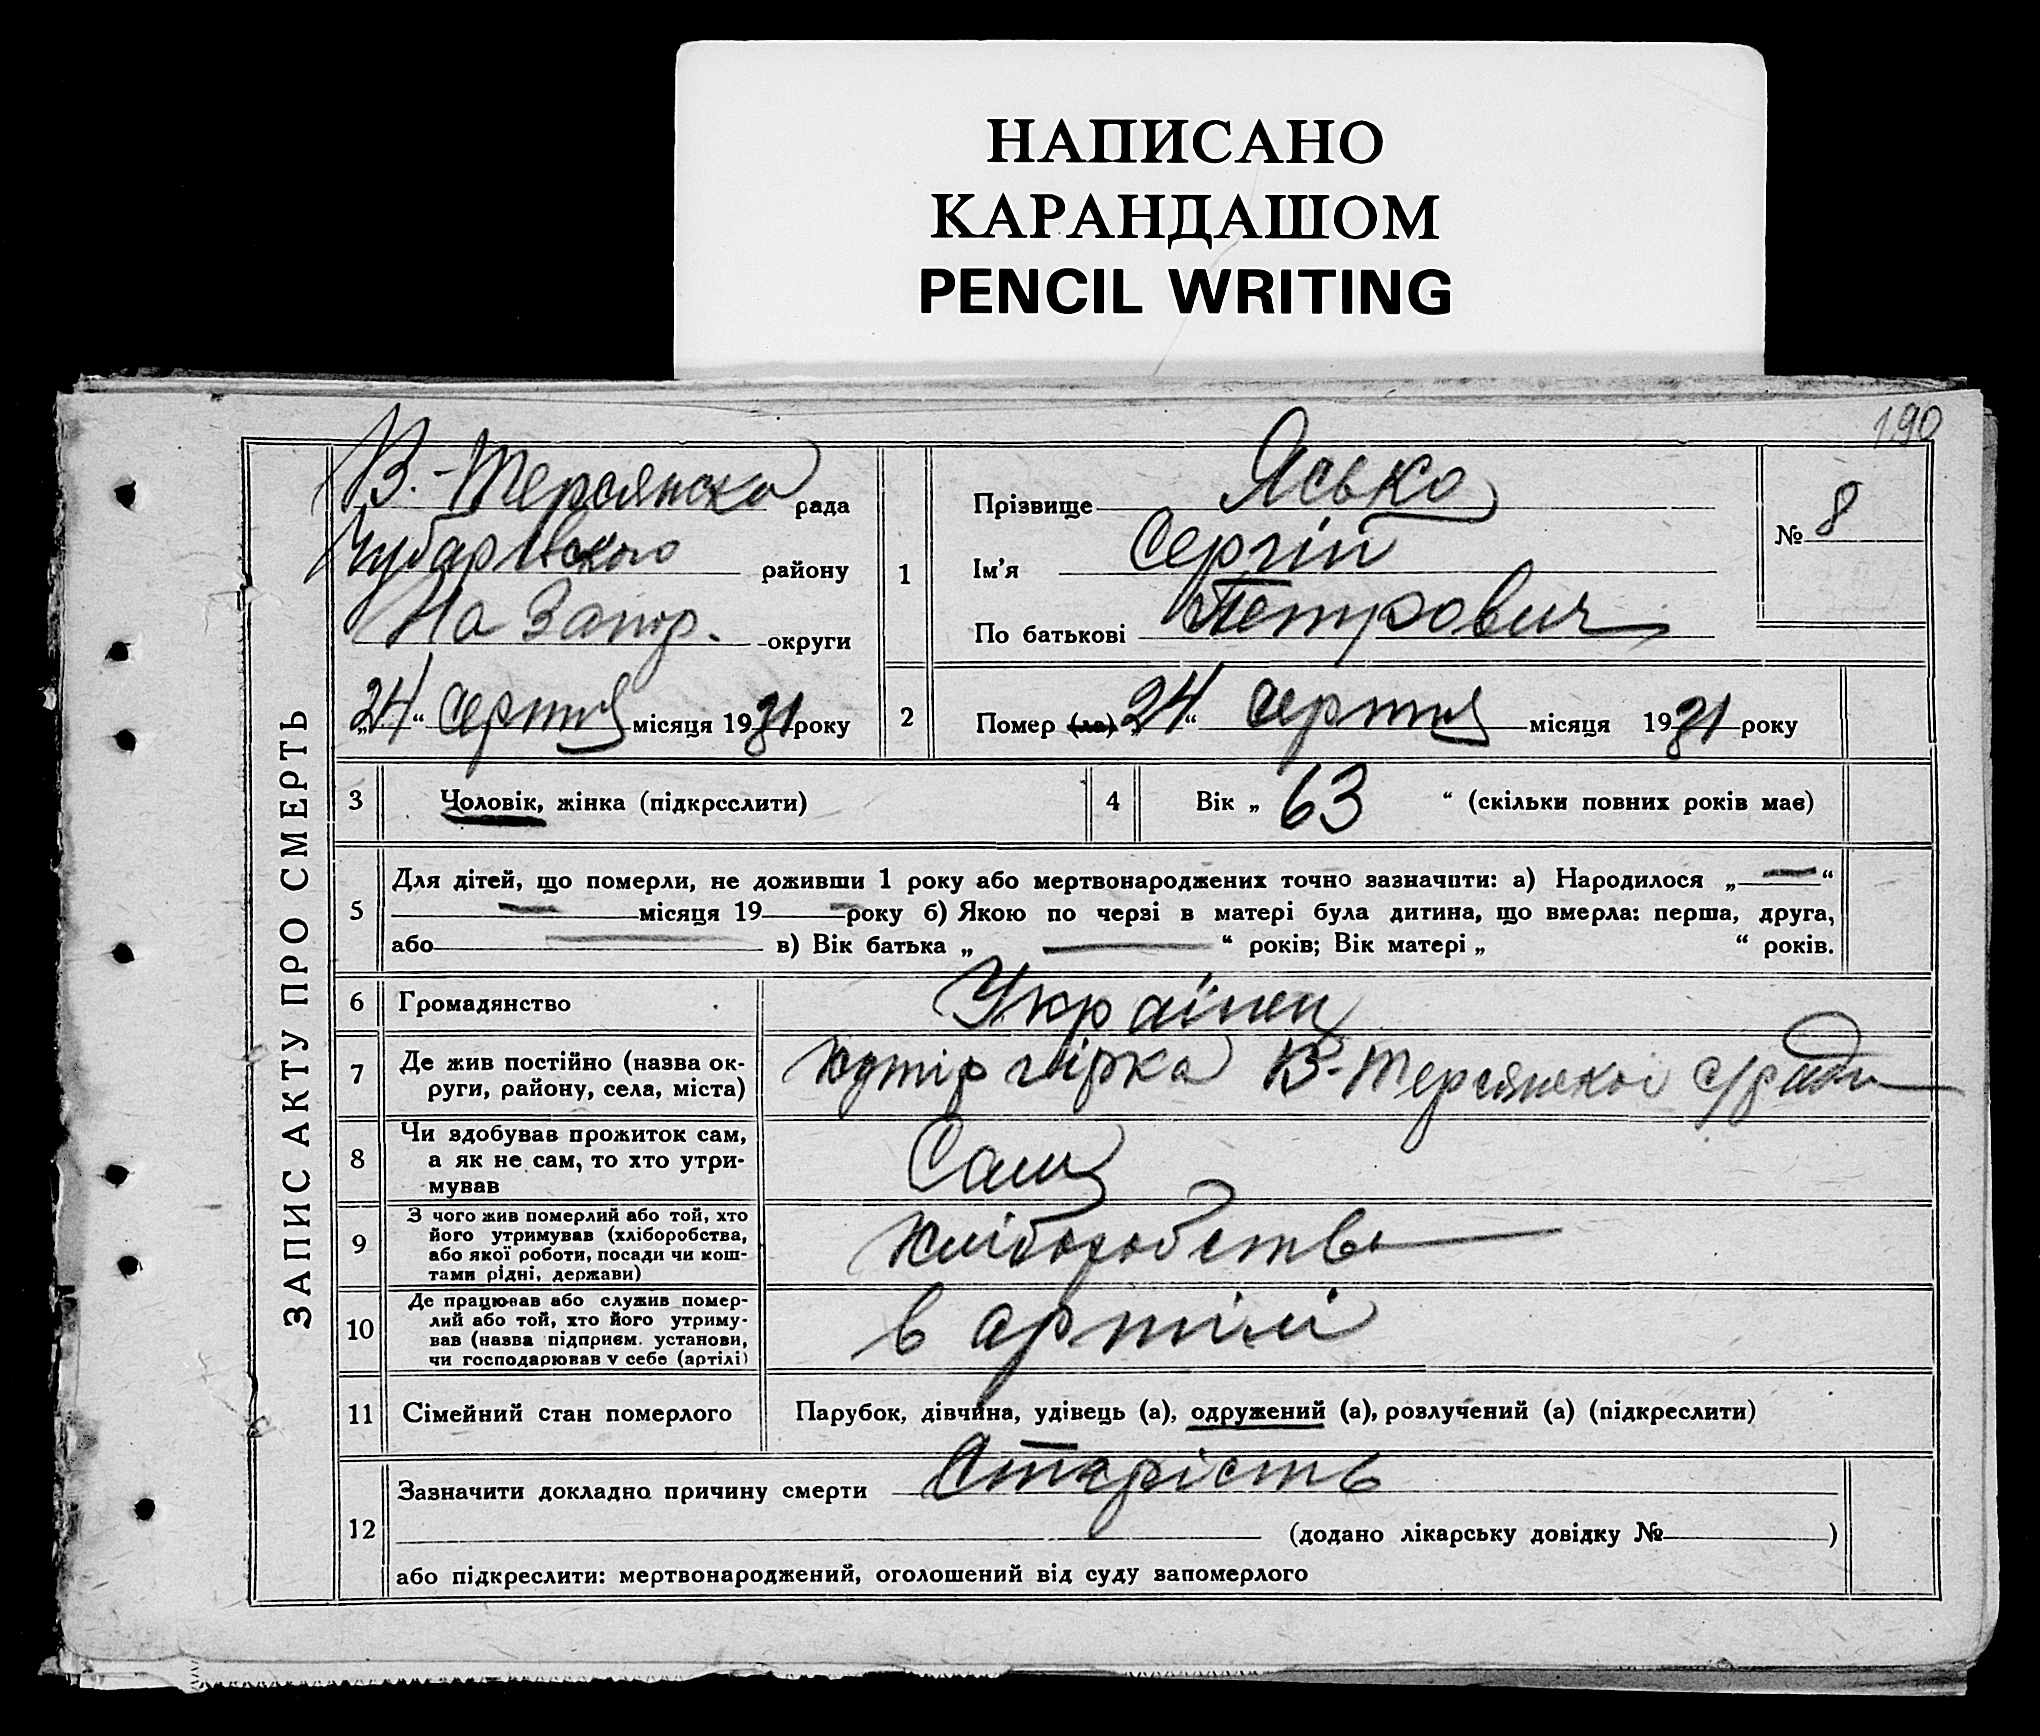 НАПИСАНО
КАРАНДАШОМ
PENCIL WRITING
190
ЗАПИС АКТУ ПРО СМЕРТЬ
В.-Терсянска рада
Чубарівського району
На Запор. округи
„24“ серпня місяця 1931 року
1
Прізвище Ясько
Ім'я Сергій
По батькові Петрович
№ 8
2
Помер (ла) „24“ серпня місяця 1931 року
3 Чоловік, жінка (підкреслити)
4 Вік „ 63 “ (скільки повних років має)
5
Для дітей, що померли, не доживши 1 року або мертвонароджених точно зазначити: а) Народилося „ — “
— місяця 19 — року б) Якою по черзі в матері була дитина, що вмерла: перша, друга,
або — в) Вік батька „ — “ років; Вік матері „ “ років.
6 Громадянство Українец
7 Де жив постійно (назва ок-
руги, району, села, міста)
Хутір гірка В-Терсянської с/ради
8 Чи здобував прожиток сам,
а як не сам, то хто утри-
мував
Сам
9 З чого жив померлий або той, хто
його утримував (хліборобства,
або якої роботи, посади чи кош-
тами рідні, держави)
Хліборобство
10 Де працював або служив помер-
лий або той, хто його утриму-
вав (назва підприєм. установи,
чи господарював у себе (артілі)
в артілі
11 Сімейний стан померлого Парубок, дівчина, удівець (а), одружений (а), розлучений (а) (підкреслити)
12
Зазначити докладно причину смерти Старість
(додано лікарську довідку № )
або підкреслити: мертвонароджений, оголошений від суду запомерлого